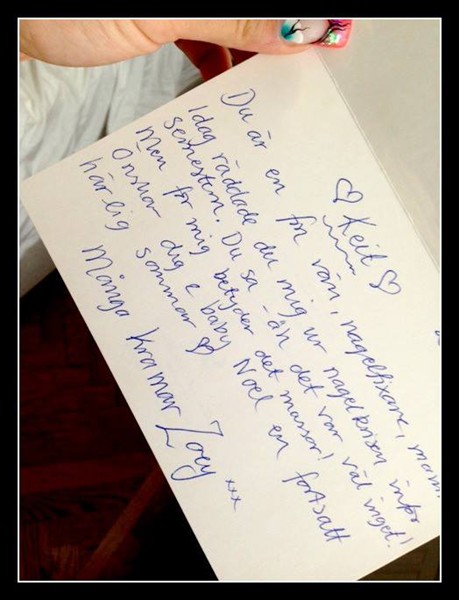 ♡ Keit ♡
Du är en fin vän, nagelfixare, mam
Idag räddade du mig ur nagelkrisen inför
semestern! Du sa - äh det var väl inget!
Men för mig betyder det massor!
Önskar dig & baby Noel en fortsatt
härlig sommar ♡
Många kramar Zoey xxx